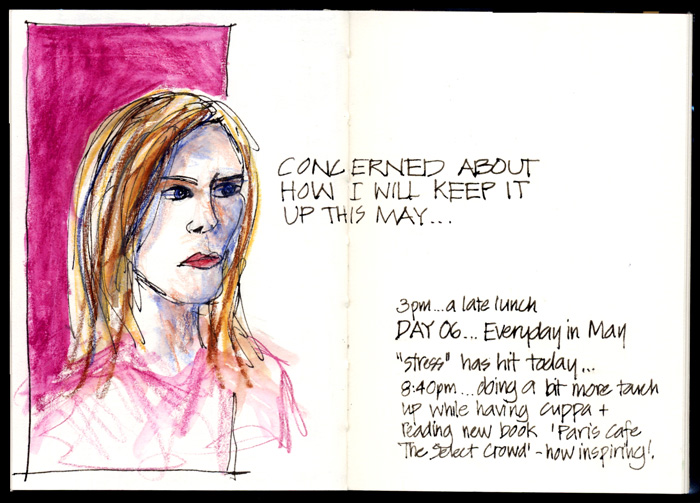 CONCERNED ABOUT
HOW I WILL KEEP IT
UP THIS MAY...
3pm...a late lunch
DAY 06... Everyday in May
"stress" has hit today...
8:40pm...doing a bit more touch
up while having cuppa +
reading new book 'Paris Cafe
The Select Crowd' - how inspiring!.